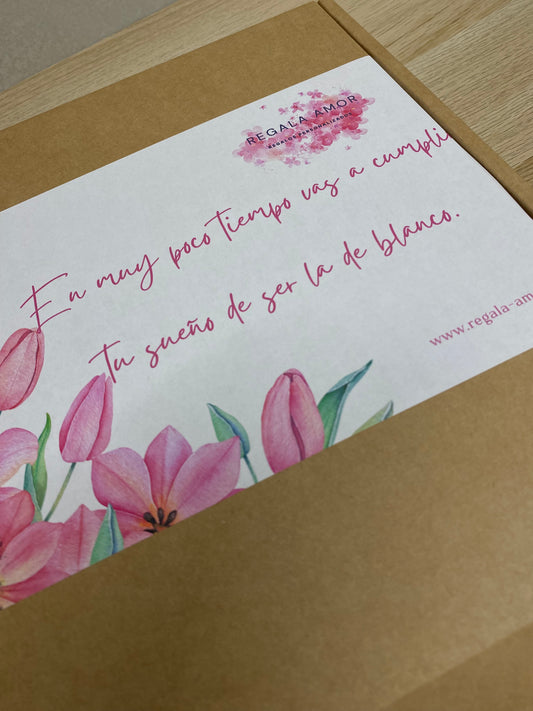 REGALA AMOR
REGALOS PERSONALIZADOS
En muy poco tiempo vas a cumpli
tu sueño de ser la de blanco.
www.regala-am